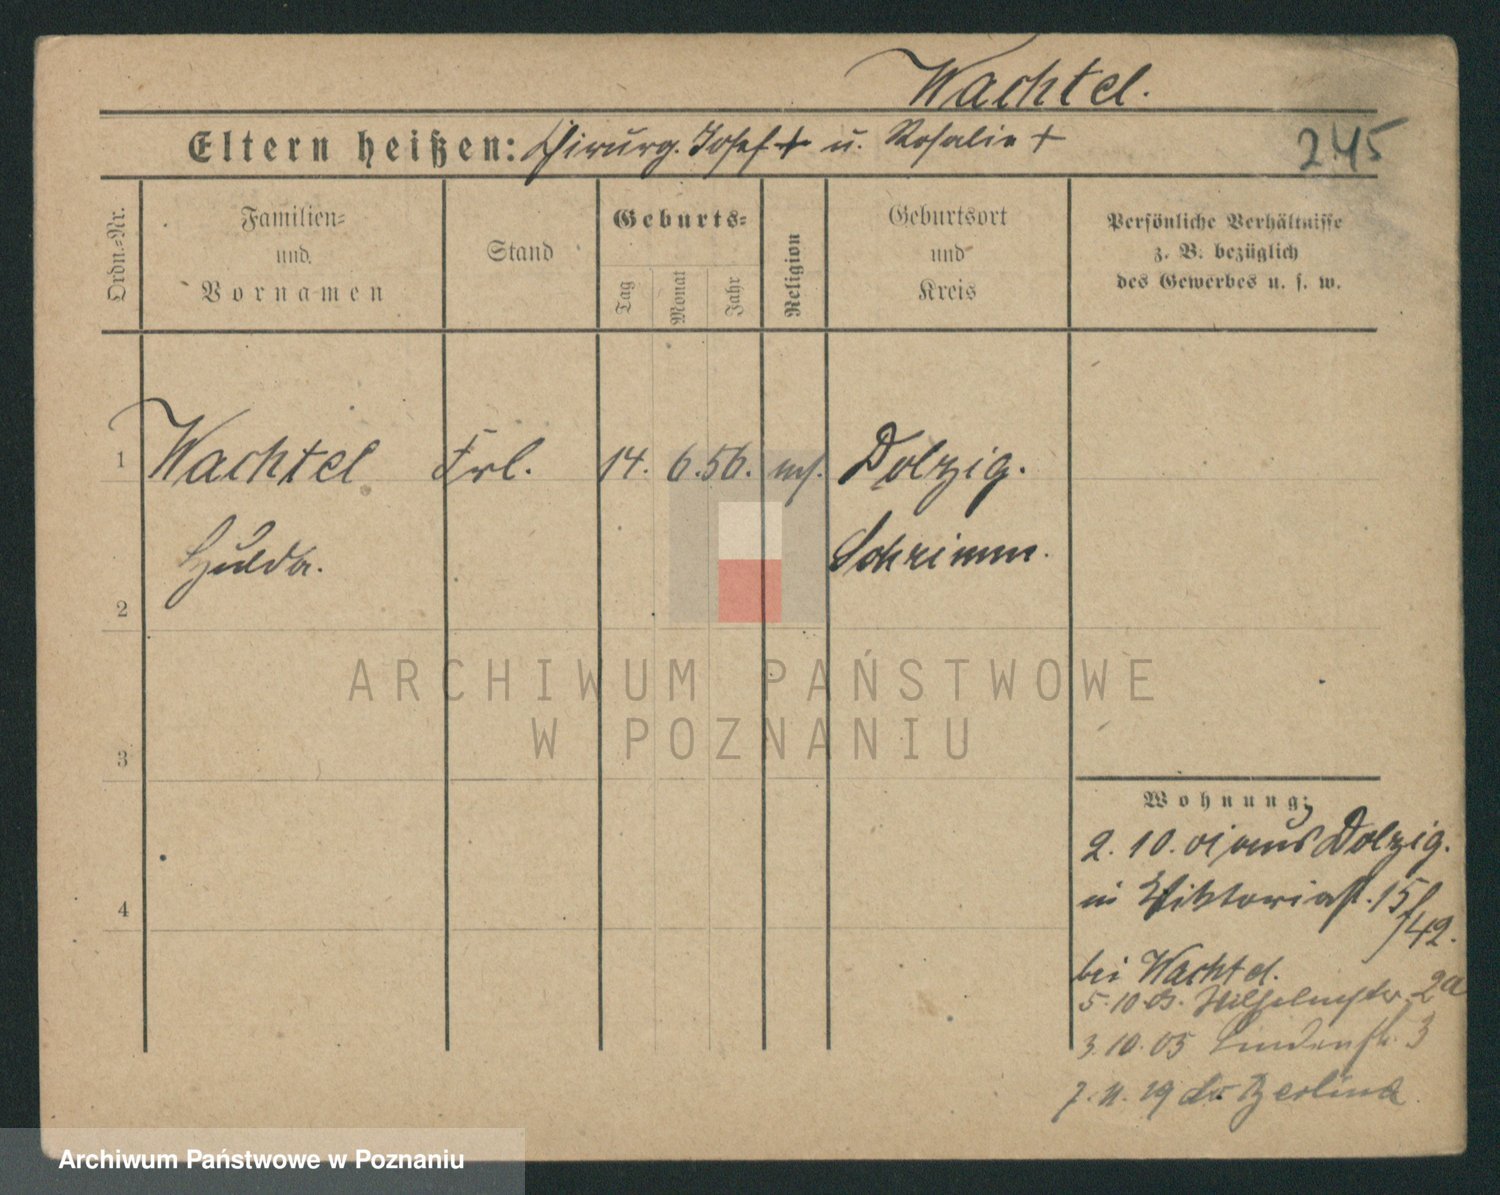 Wachtel.
Eltern heißen: Chirurg. Josef + u. Rosalie +
245
Ordn.-Nr.
Familien-
und
Vornamen
Stand
Geburts-
Tag
Monat
Jahr
Religion
Geburtsort
und
Kreis
Persönliche Verhältnisse
z. B. bezüglich
des Gewerbes u. s. w.
1 Wachtel Frl. 14. 6. 56. mos. Dolzig.
Hulda. Schrimm.
2
3
4
Wohnung:
2. 10. 01 aus Dolzig.
in Viktoriast. 15
/42.
bei Wachtel.
5. 10. 03. 2a
3. 10. 05 Lindenstr. 3
7. 11. 19 Berlin
ARCHIWUM PAŃSTWOWE
W POZNANIU
Archiwum Państwowe w Poznaniu